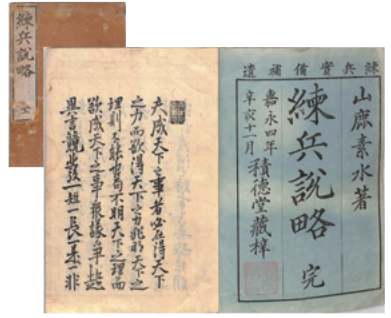 練兵説略 全
練兵實備補遺
山鹿素水著
練兵説略 完
嘉永四年
辛亥十一月
積徳堂藏梓
夫成天下之事者必在得天下
之力而欲得天下之力非明天下之
理則不能也苟不期天下之理而
欲成天下之事衆議爭起
異言競發一短一長一美一非